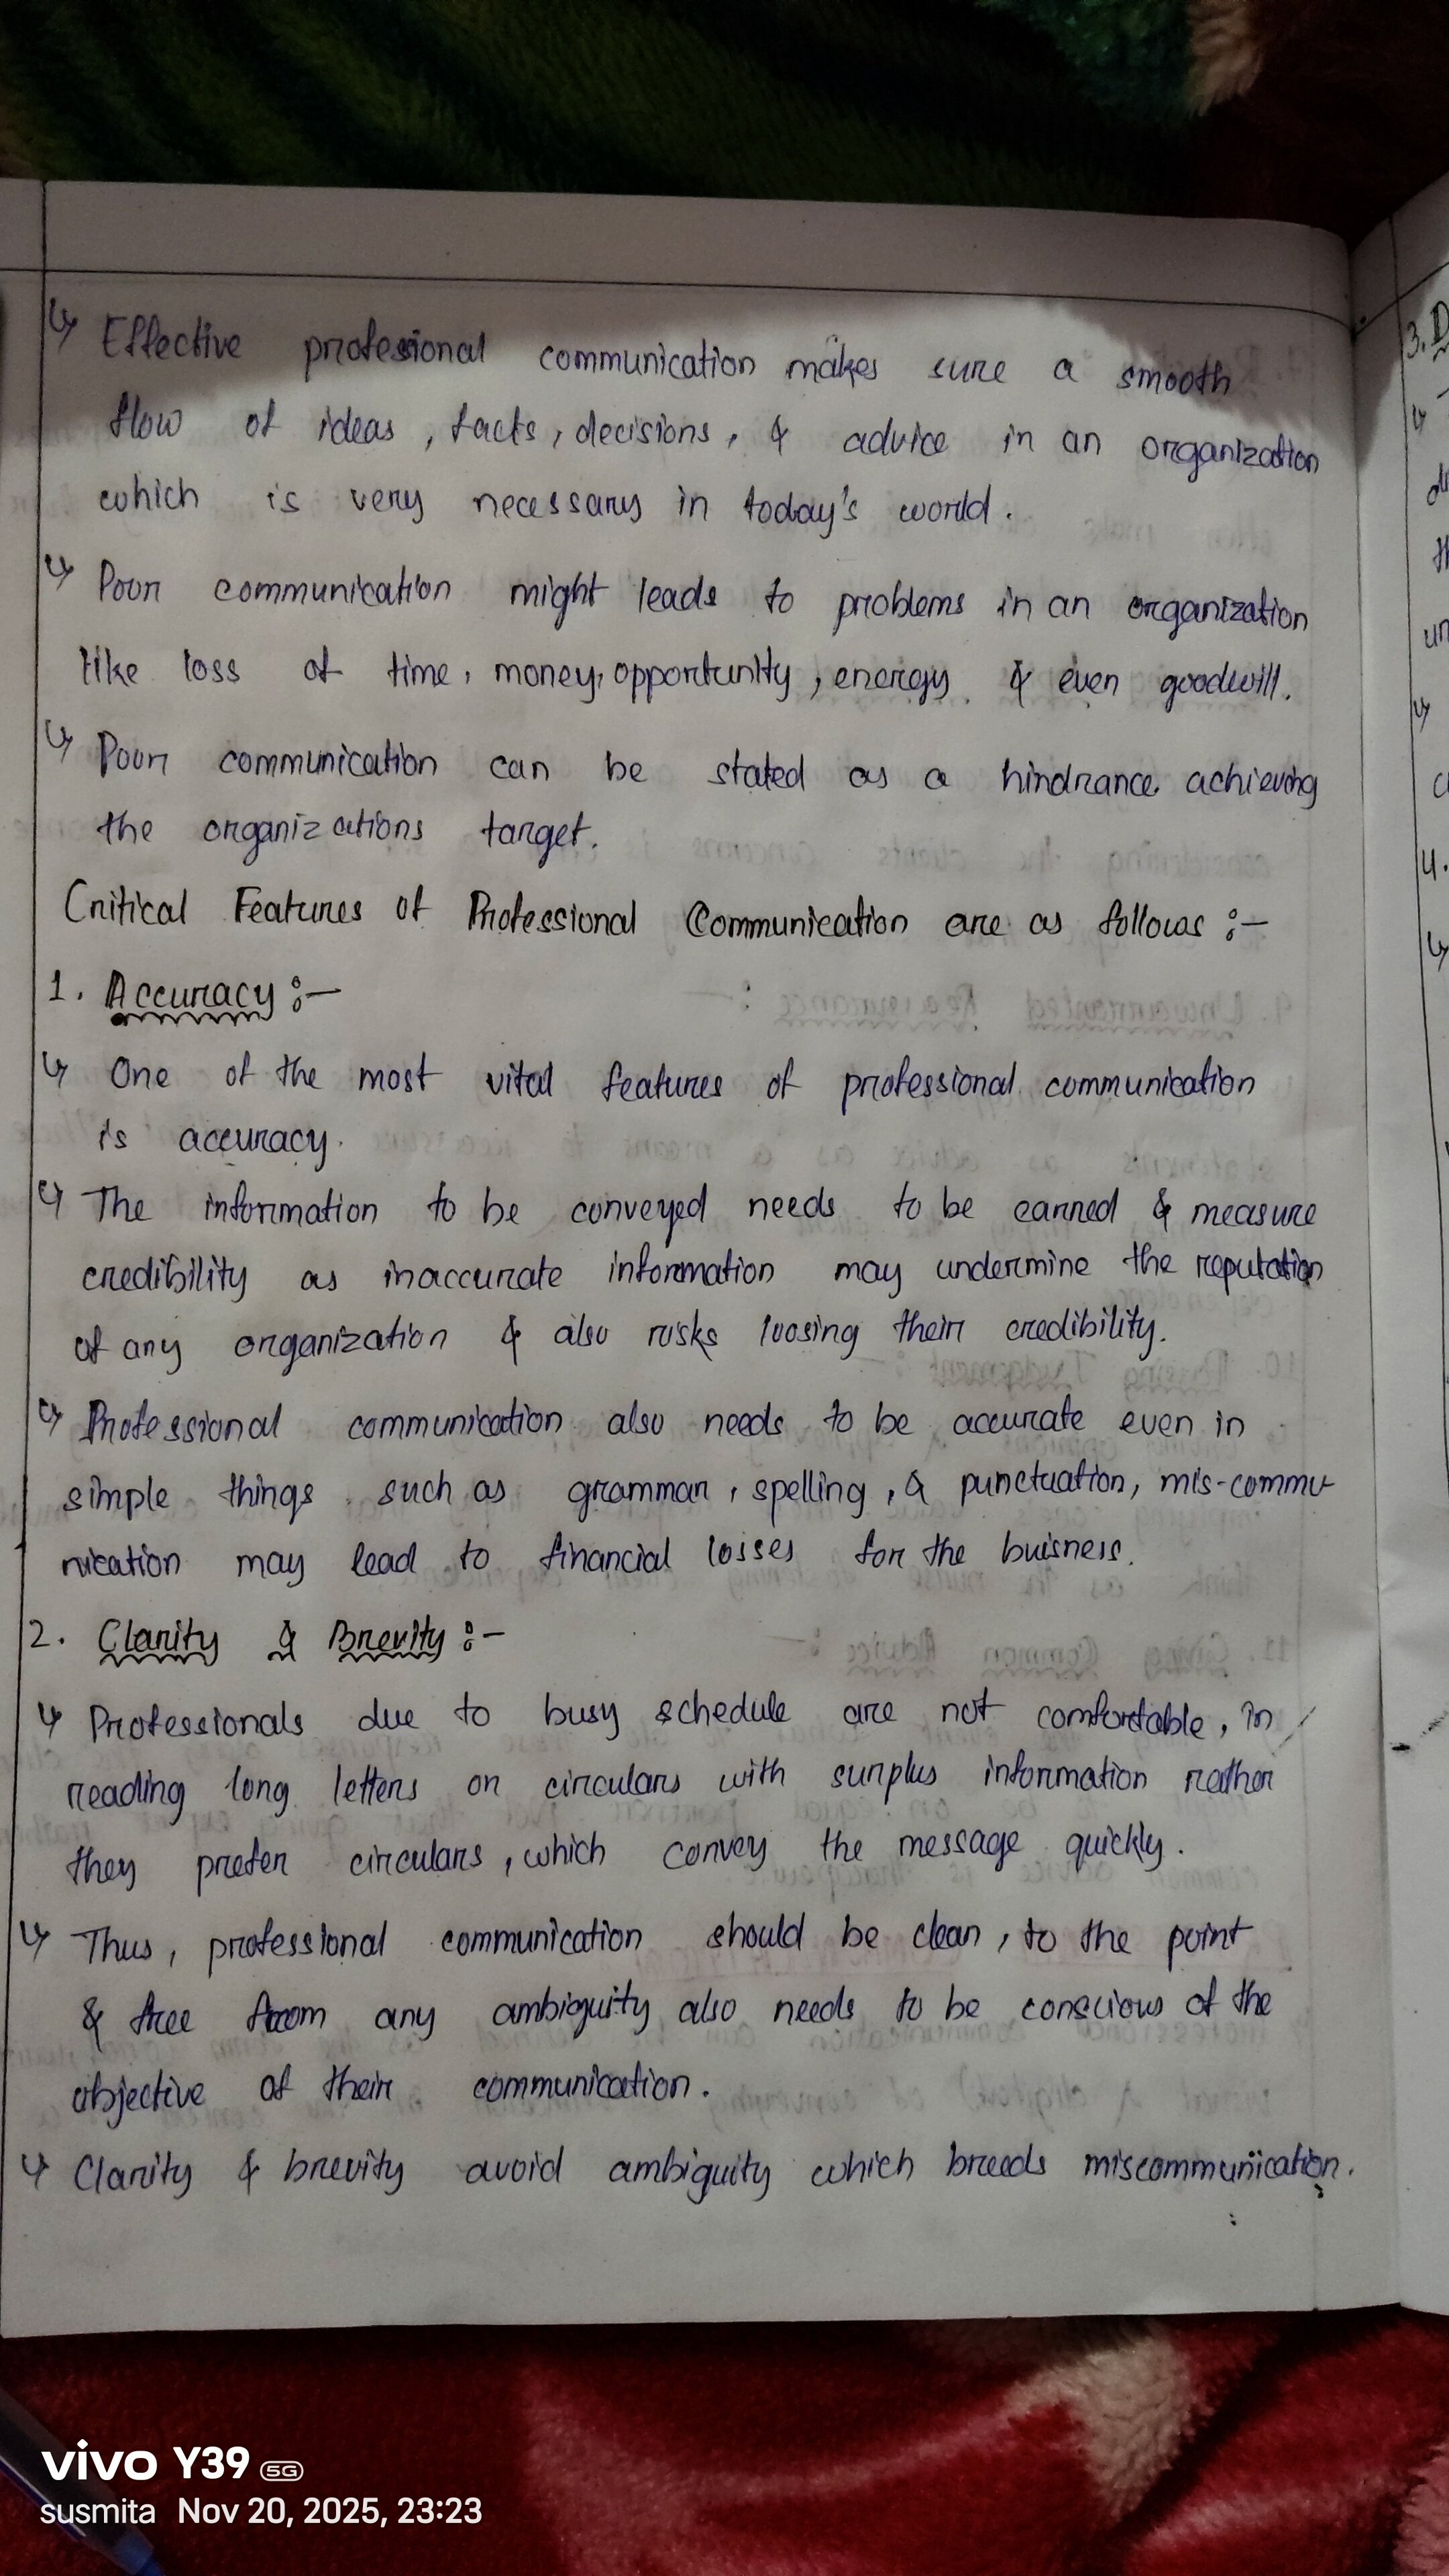 ↳ Effective professional communication makes sure a smooth
flow of ideas, facts, decisions, & advice in an organization
which is very necessary in today's world.
↳ Poor communication might leads to problems in an organization
like loss of time, money, opportunity, energy & even goodwill.
↳ Poor communication can be stated as a hindrance achieving
the organizations target.
Critical Features of Professional Communication are as follows :-
1. Accuracy :-
↳ One of the most vital features of professional communication
is accuracy.
↳ The information to be conveyed needs to be earned & measure
credibility as inaccurate information may undermine the reputation
of any organization & also risks loosing their credibility.
↳ Professional communication also needs to be accurate even in
simple things such as grammar, spelling, & punctuation, mis-commu-
nication may lead to financial losses for the buisness.
2. Clarity & Brevity :-
↳ Professionals due to busy schedule are not comfortable, in
reading long letters or circulars with surplus information rather
they prefer circulars, which convey the message quickly.
↳ Thus, professional communication should be clear, to the point
& free from any ambiguity also needs to be conscious of the
objective of their communication.
↳ Clarity & brevity avoid ambiguity which breeds miscommunication.
3. D
4.
vivo Y39 5G
susmita Nov 20, 2025, 23:23